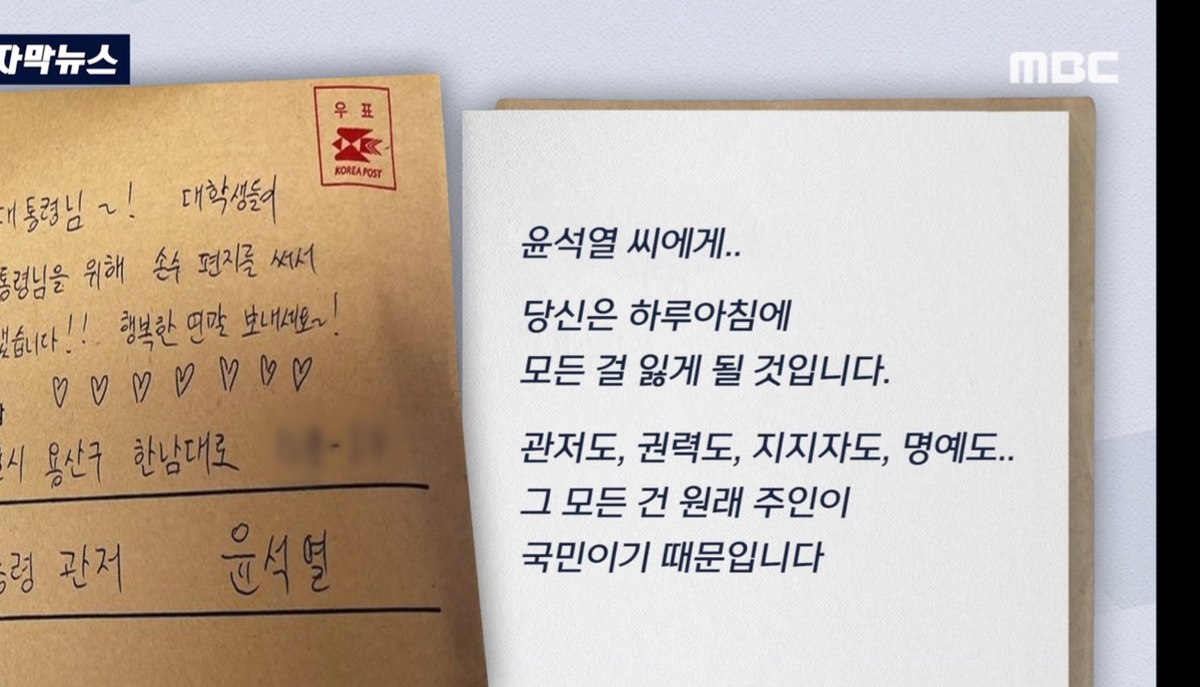 자막뉴스
MBC
우표
KOREA POST
대통령님~! 대학생들이
통령님을 위해 손수 편지를 써서
습니다!! 행복한 연말 보내세요~!
♡ ♡ ♡ ♡ ♡ ♡ ♡
시 용산구 한남대로
령 관저 윤석열
윤석열 씨에게..
당신은 하루아침에
모든 걸 잃게 될 것입니다.
관저도, 권력도, 지지자도, 명예도..
그 모든 건 원래 주인이
국민이기 때문입니다